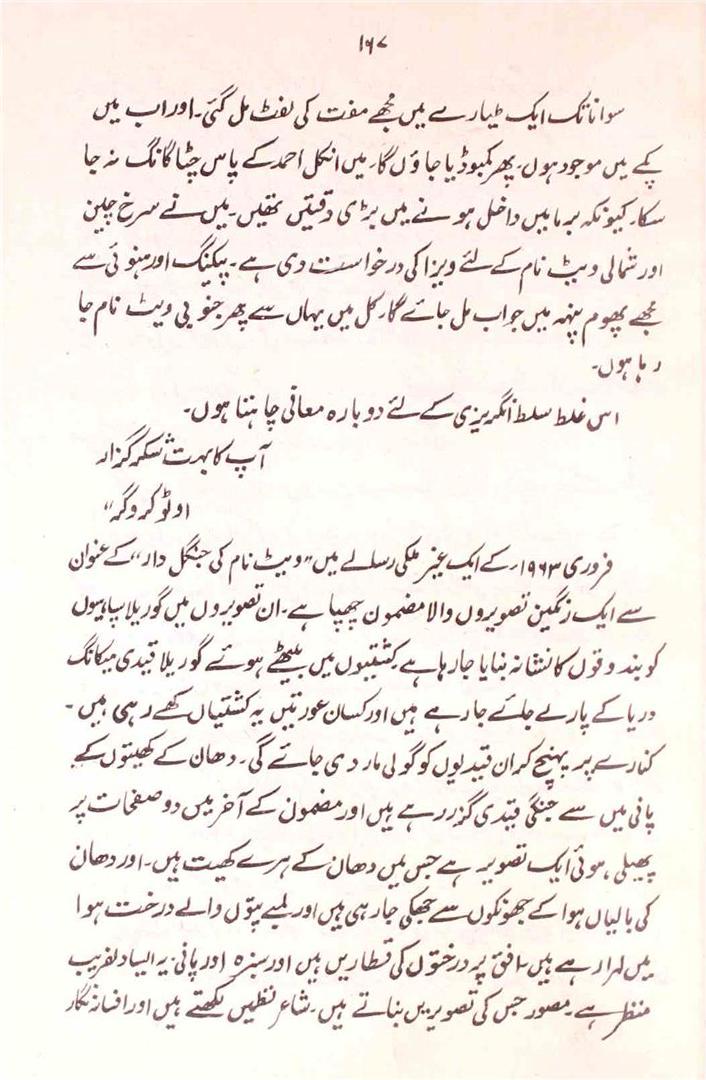 ۱۶۷
سوانا تک ایک طیارے میں مجھے مفت کی لفٹ مل گئی۔ اور اب میں
پکے میں موجود ہوں۔ پھر کمبوڈیا جاؤں گا۔ میں انکل احمد کے پاس چٹاگانگ نہ جا
سکا۔ کیونکہ برما میں داخل ہونے میں بڑی دقیتیں تھیں۔ میں نے سرخ چین
اور شمالی ویٹ نام کے لئے ویزا کی درخواست دی ہے۔ پیکنگ اور ہنوئی سے
مجھے پھوم پنہہ میں جواب مل جائے گا۔ کل میں یہاں سے پھر جنوبی ویٹ نام جا
رہا ہوں۔
اس غلط سلط انگریزی کے لئے دوبارہ معافی چاہتا ہوں۔
آپ کا بہت شکر گزار
اوٹو کروگر“
فروری ۱۹۶۳ء کے ایک غیر ملکی رسالے میں ”ویٹ نام کی جنگل وار“ کے عنوان
سے ایک رنگین تصویروں والا مضمون چھپا ہے۔ ان تصویروں میں گوریلا سپاہیوں
کو بندوقوں کا نشانہ بنایا جا رہا ہے کشتیوں میں بیٹھے ہوئے گوریلا قیدی میکانگ
دریا کے پار لے جائے جا رہے ہیں اور کسان عورتیں یہ کشتیاں کھے رہی ہیں۔
کنارے پر پہنچ کر ان قیدیوں کو گولی مار دی جائے گی۔ دھان کے کھیتوں کے
پانی میں سے جنگی قیدی گزر رہے ہیں اور مضمون کے آخر میں دو صفحات پر
پھیلی ہوئی ایک تصویر ہے جس میں دھان کے ہرے کھیت ہیں۔ اور دھان
کی بالیاں ہوا کے جھونکوں سے جھکی جا رہی ہیں اور لمبے پتوں والے درخت ہوا
میں لہرا رہے ہیں۔ افق پر درختوں کی قطاریں ہیں اور سبزہ اور پانی۔ یہ ایسا دلفریب
منظر ہے۔ مصور جس کی تصویریں بناتے ہیں۔ شاعر نظمیں لکھتے ہیں اور افسانہ نگار